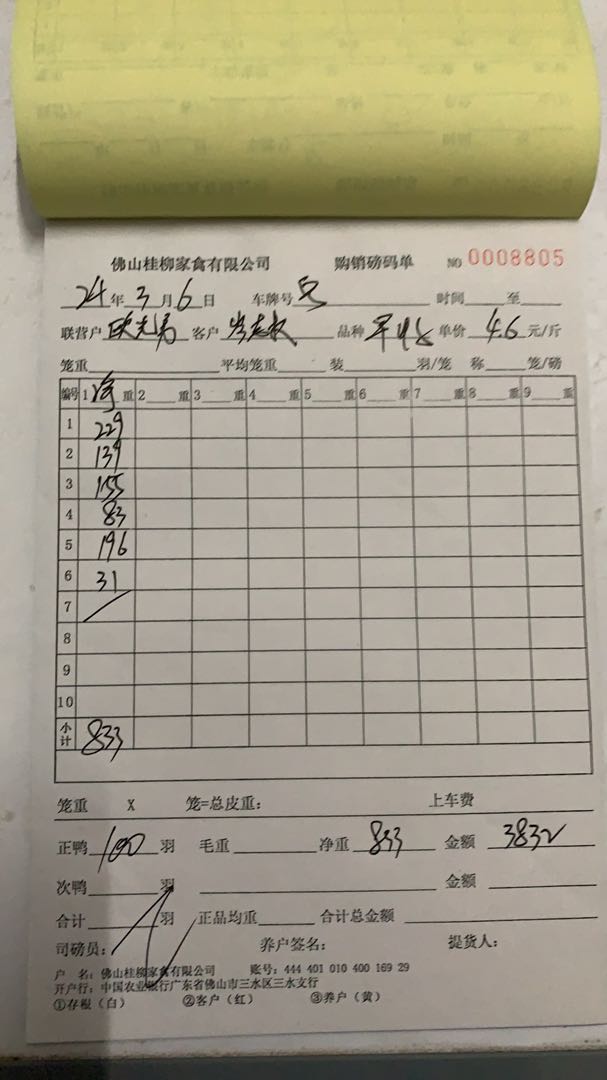 佛山桂柳家禽有限公司 购销磅码单 NO 0008805
24年3月6日 车牌号 时间 至
联营户 客户 品种 单价 4.6 元/斤
笼重 平均笼重 装 羽/笼 称 笼/磅
编号 1 净 重 2 重 3 重 4 重 5 重 6 重 7 重 8 重 9 重
1 229
2 139
3 155
4 83
5 196
6 31
7
8
9
10
小计 833
笼重 X 笼=总皮重: 上车费
正鸭 100 羽 毛重 净重 833 金额 3832
次鸭 羽 金额
合计 羽 正品均重 合计总金额
司磅员: 养户签名: 提货人:
户 名: 佛山桂柳家禽有限公司 账号: 444 401 010 400 169 29
开户行: 中国农业银行广东省佛山市三水区三水支行
①存根（白） ②客户（红） ③养户（黄）